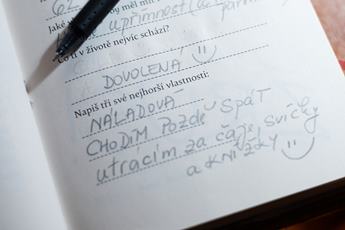 by měl mít
Jaké upřímnost
Co ti v životě nejvíc schází?
DOVOLENÁ
Napiš tři své nejhorší vlastnosti:
NÁLADOVÁ
CHODÍM Pozdě spát
utrácím za čaje, svíčky
a knížky